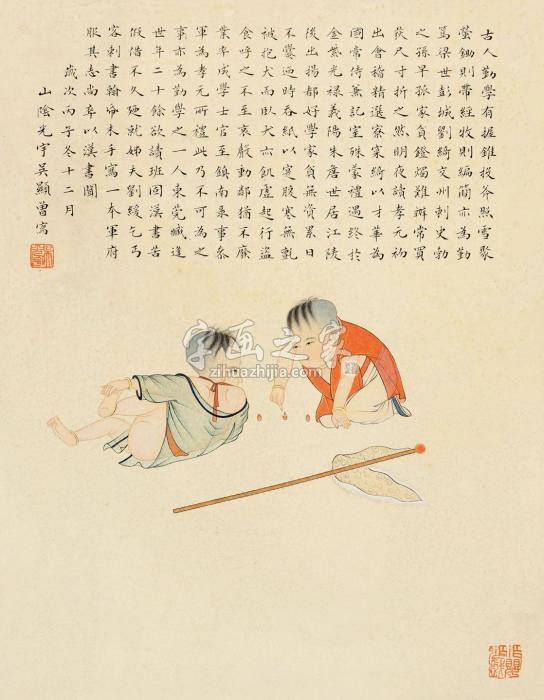 古人勤學有握錐投斧照雪聚
螢鋤則帶經牧則編簡亦為勤
篤梁世彭城劉綺交州刺史勃
之孫早孤家貧鐙燭難辦常買
荻尺寸折之然明夜讀孝元初
出會稽精選寮寀綺以才華為
國常侍兼記室殊蒙禮遇終於
金紫光祿義陽朱詹世居江陵
後出揚都好學家貧無資累日
不爨過時吞紙以實腹寒無氈
被抱犬而臥犬亦飢虛起行盜
食呼之不至哀聲動鄰猶不廢
業卒成學士官至鎮南錄事參
軍為孝元所禮此乃不可為之
事亦為勤學之一人東莞臧逢
世年二十餘欲讀班固漢書苦
假借不久迺就姊夫劉緩乞丐
客刺書翰帋末手寫一本軍府
服其志尚卒以漢書聞
歲次丙子冬十二月
山陰光宇吳顯曾寫
字画之家
zihuazhijia.com